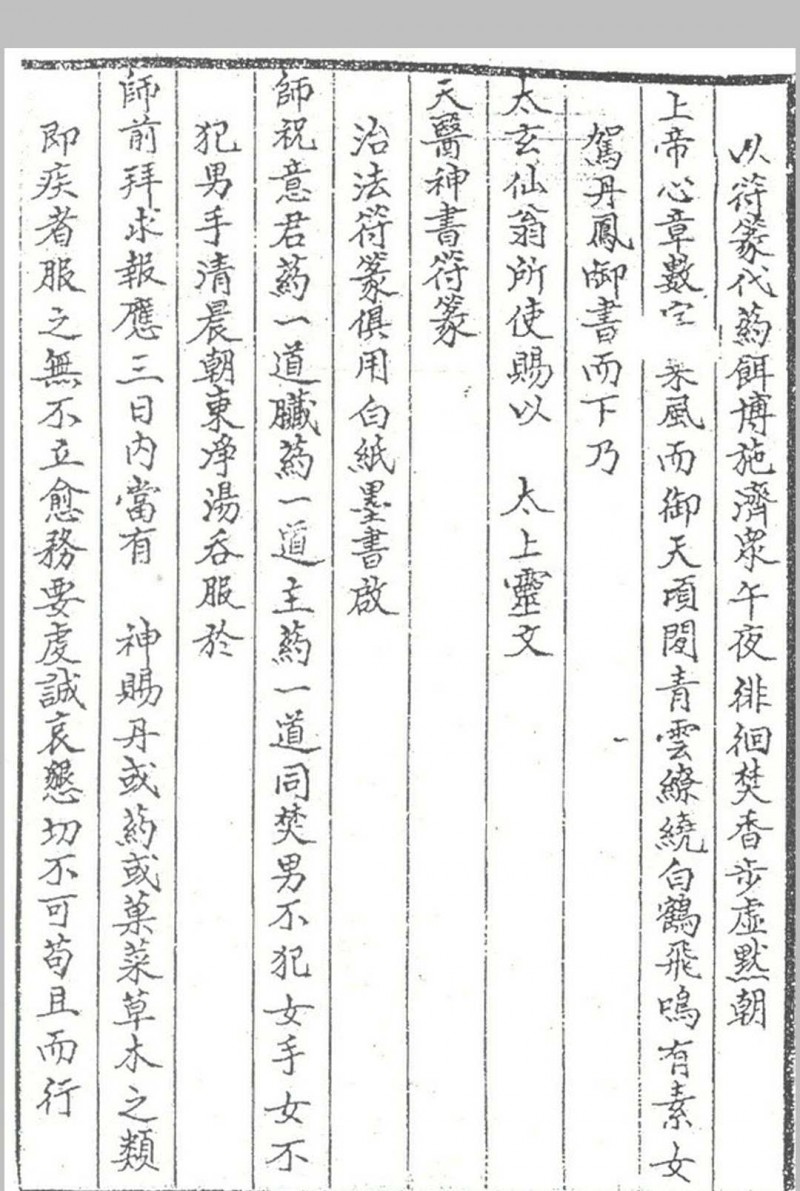 以符篆代药餌博施濟眾午夜徘徊焚香步虛默朝
上帝心章數字 乘風而御天頃間青雲繚繞白鶴飛鳴有素女
駕丹鳳御書而下乃
太玄仙翁所使賜以 太上靈文
天醫神書符篆
治法符篆俱用白紙墨書啟
師祝意君药一道臟药一道主药一道同焚男不犯女手女不
犯男手清晨朝東淨湯吞服於
師前拜求報應三日內當有 神賜丹或药或菓菜草木之類
即疾者服之無不立愈務要虔誠哀懇切不可苟且而行